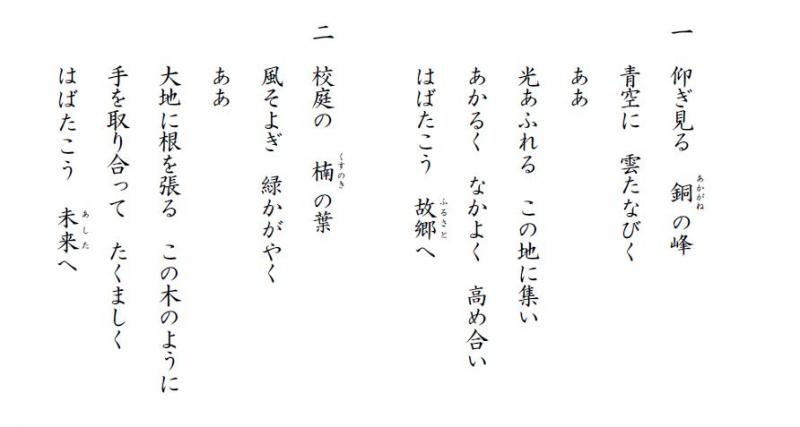 一　仰ぎ見る　銅の峰
青空に　雲たなびく
ああ
光あふれる　この地に集い
あかるく　なかよく　高め合い
はばたこう　故郷へ
二　校庭の　楠の葉
風そよぎ　緑かがやく
ああ
大地に根を張る　この木のように
手を取り合って　たくましく
はばたこう　未来へ
あかがね
ふるさと
くすのき
あした